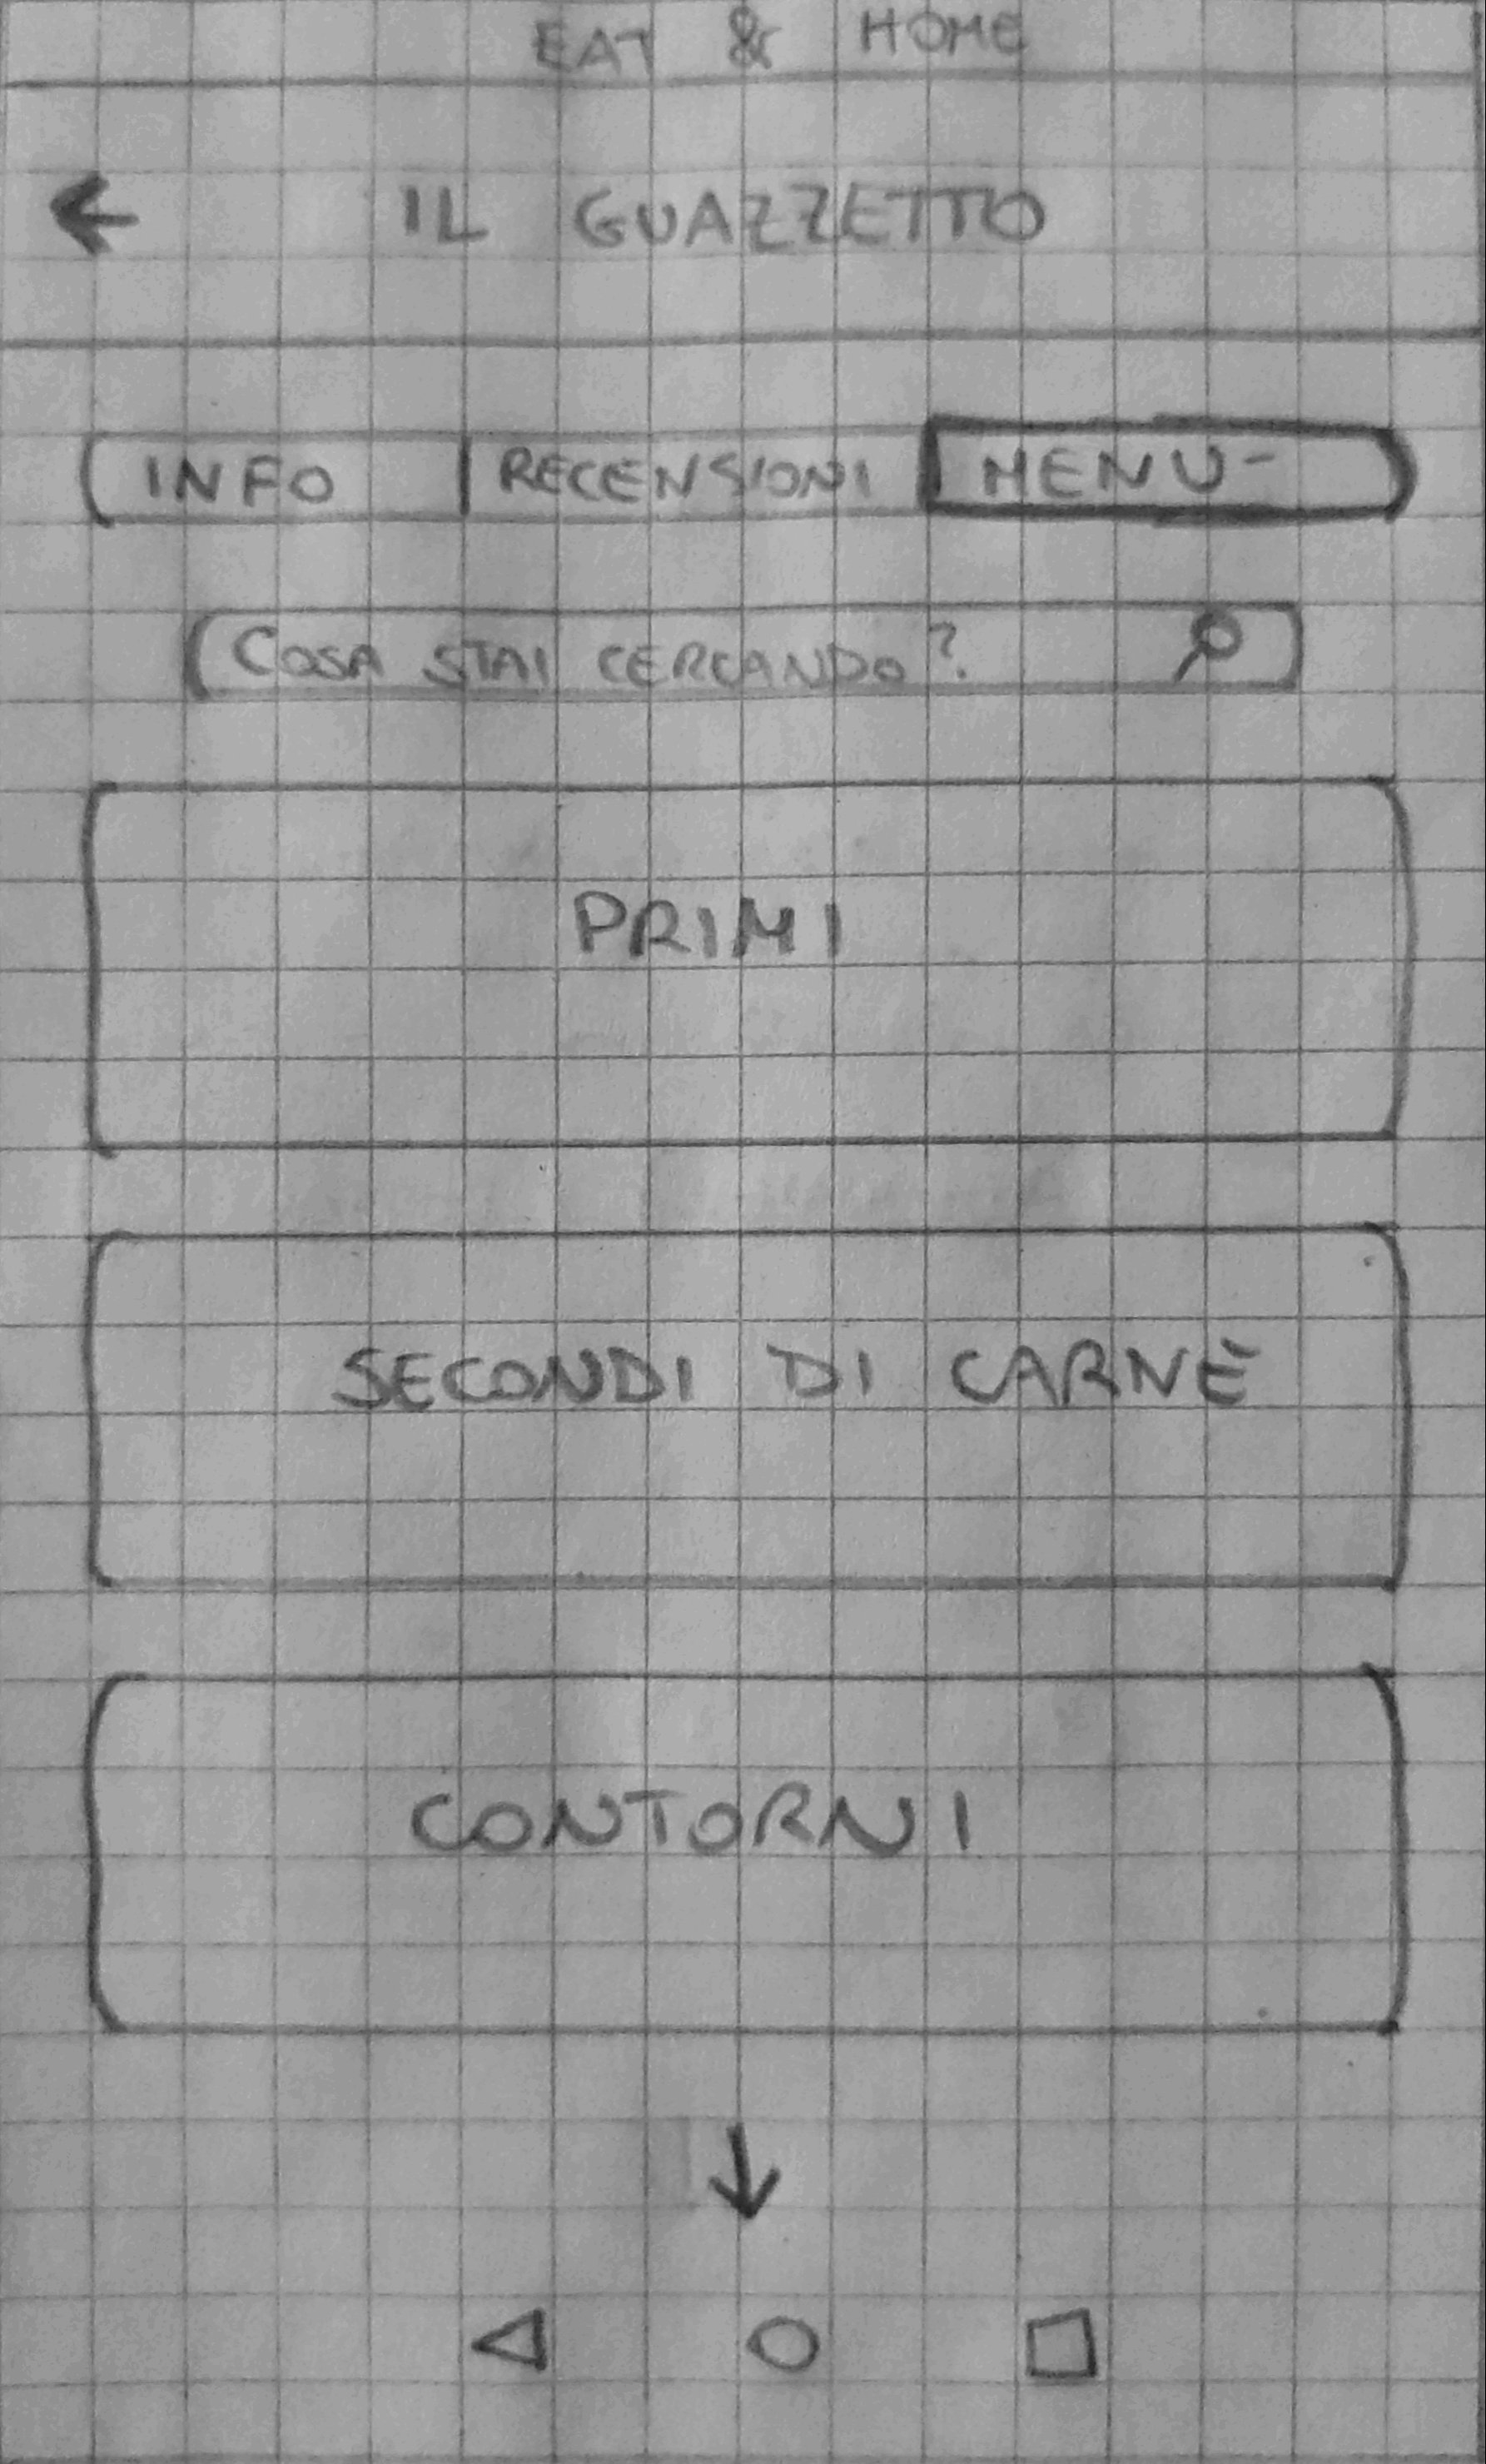 EAT & HOME
IL GUAZZETTO
INFO RECENSIONI MENU-
COSA STAI CERCANDO?
PRIMI
SECONDI DI CARNE
CONTORNI